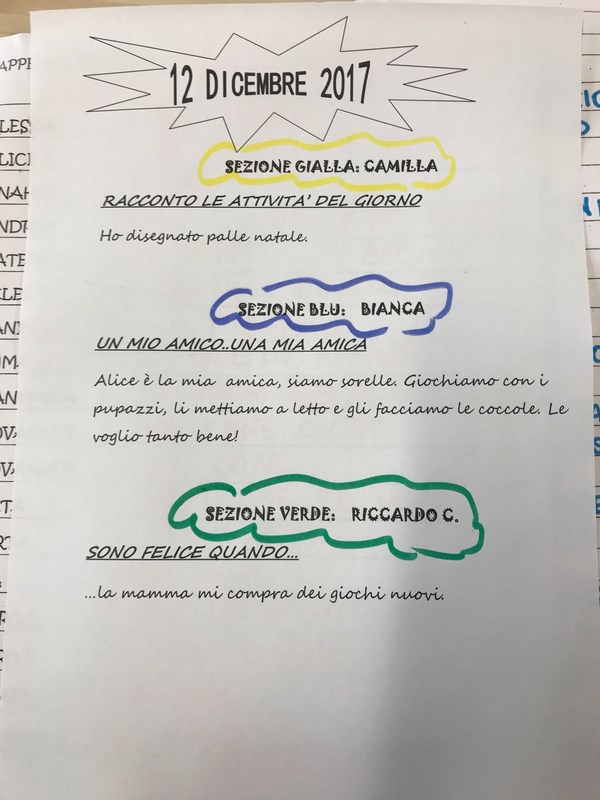 12 DICEMBRE 2017
SEZIONE GIALLA: CAMILLA
RACCONTO LE ATTIVITA' DEL GIORNO
Ho disegnato palle natale.
SEZIONE BLU: BIANCA
UN MIO AMICO..UNA MIA AMICA
Alice è la mia amica, siamo sorelle. Giochiamo con i
pupazzi, li mettiamo a letto e gli facciamo le coccole. Le
voglio tanto bene!
SEZIONE VERDE: RICCARDO C.
SONO FELICE QUANDO...
...la mamma mi compra dei giochi nuovi.